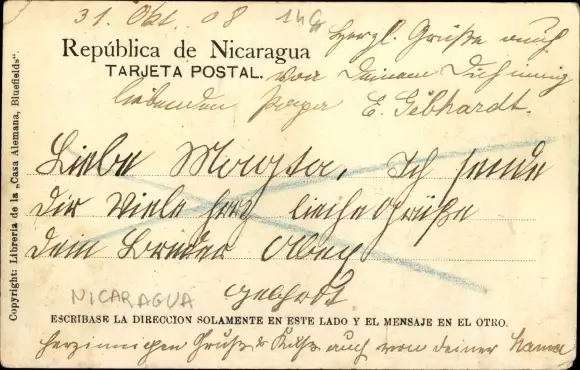 31. Okt. 08
Herzl. Grüße auch
República de Nicaragua
TARJETA POSTAL.
von Deinem Dich innig
liebenden Papa E. Gebhardt.
Liebe Ich sende
dir Viele herzliche Grüße
dein Bruder
Gebhardt
NICARAGUA
ESCRIBASE LA DIRECCION SOLAMENTE EN ESTE LADO Y EL MENSAJE EN EL OTRO.
herzinnigen Gruß & Kuß auch von deiner Mama
Copyright: Libreria de la „Casa Alemana, Bluefields“.